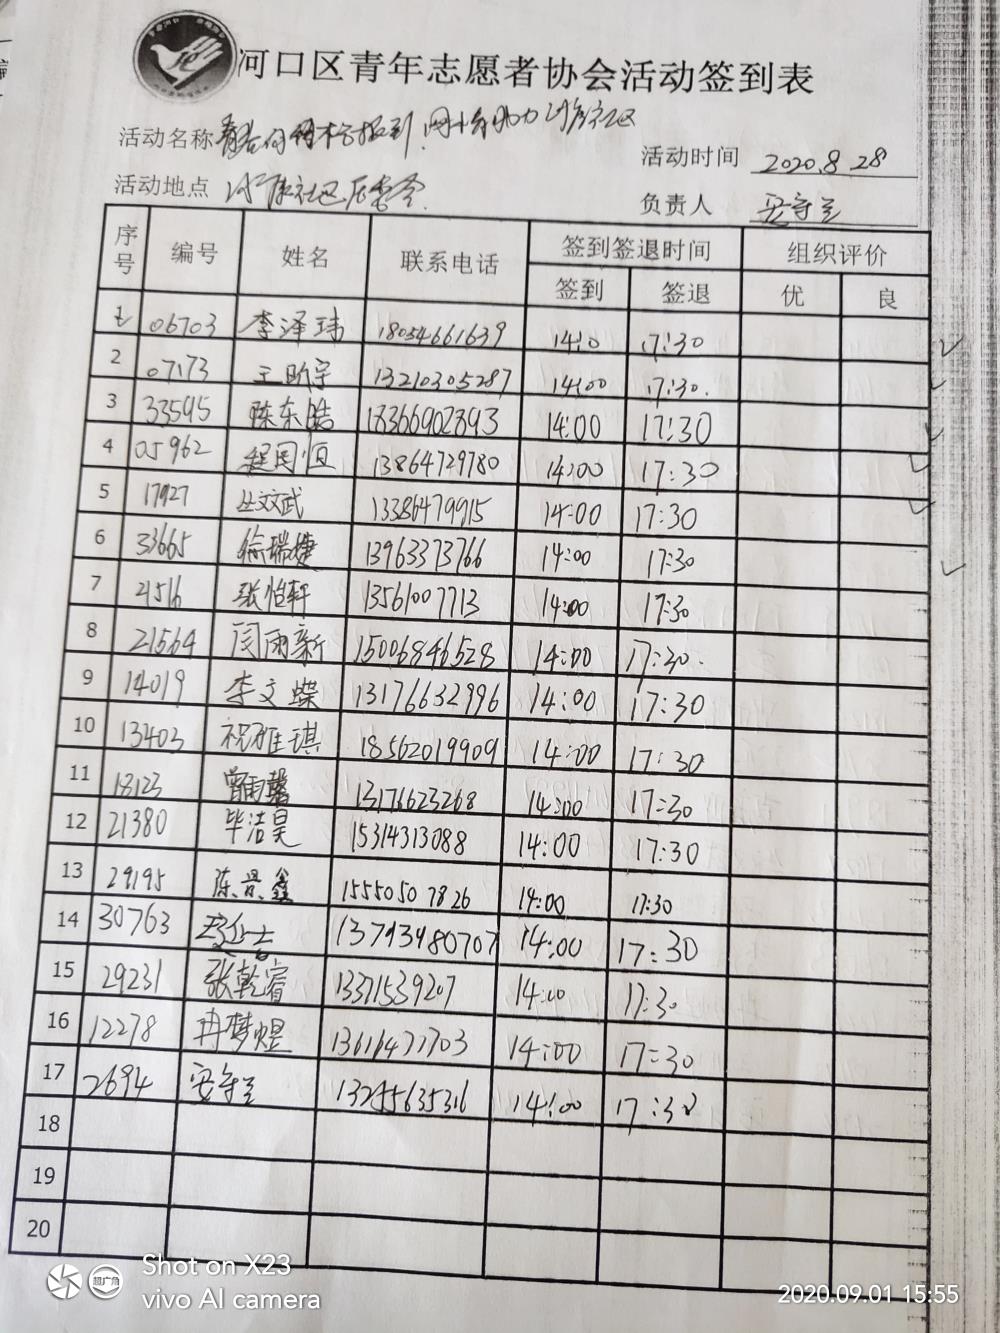 河口区青年志愿者协会活动签到表
活动名称
活动时间 2020.8.28
活动地点 社区居委会
负责人 安守兰
序号 编号 姓名 联系电话 签到签退时间 组织评价
签到 签退 优 良
1 06703 李泽玮 18054661639 14:0 17:30
2 07173 王昕宇 13210305287 14:00 17:30.
3 33595 陈东皓 18366902893 14:00 17:30
4 05962 程国恒 13864729780 14:00 17:30
5 17927 丛文武 13386479915 14:00 17:30
6 33665 徐瑞婕 13963373766 14:00 17:30
7 21516 张怡轩 13561007713 14:00 17:30
8 21564 闫雨新 15006846528 14:00 17:30.
9 14019 李文蝶 13176632996 14:00 17:30
10 13403 祝雅琪 18562019909 14:00 17:30
11 18123 13176623268 14:00 17:30
12 21380 毕洁昊 15314313088 14:00 17:30
13 29195 陈景鑫 15550507826 14:00 17:30
14 30763 13793980707 14:00 17:30
15 29231 张乾睿 13371539207 14:00 17:30
16 12278 冉梦煜 13616477703 14:00 17:30
17 2694 安守兰 13255635316 14:00 17:30
18
19
20
超广角
Shot on X23
vivo AI camera
2020.09.01 15:55